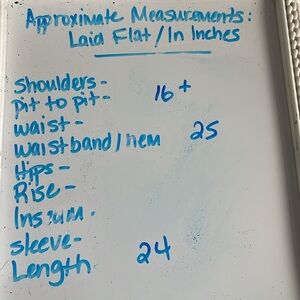 Approximate Measurements:
Laid Flat/In Inches
Shoulders-
pit to pit- 16+
waist-
waistband/hem 25
Hips-
Rise-
Inseam.
Sleeve-
Length. 24